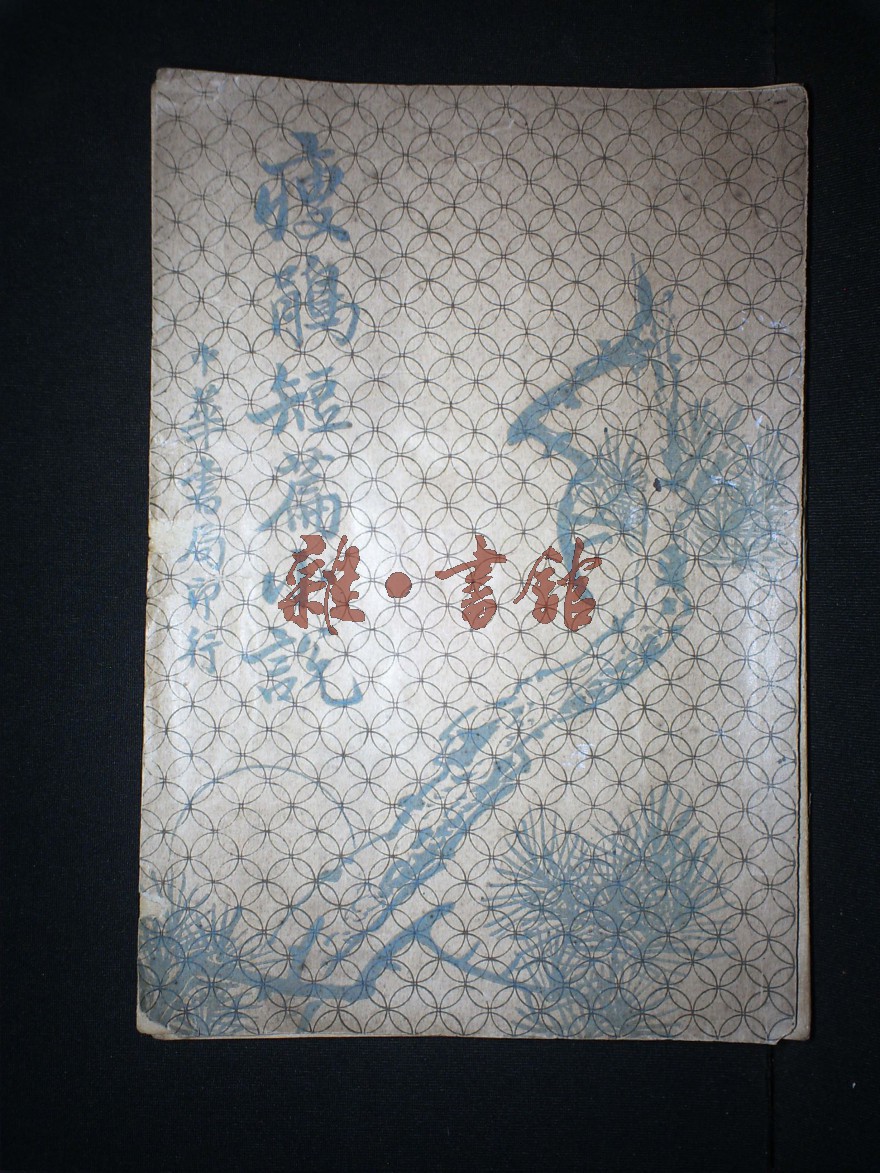 瘦鵑短篇小說
中華書局印行
雜·書館